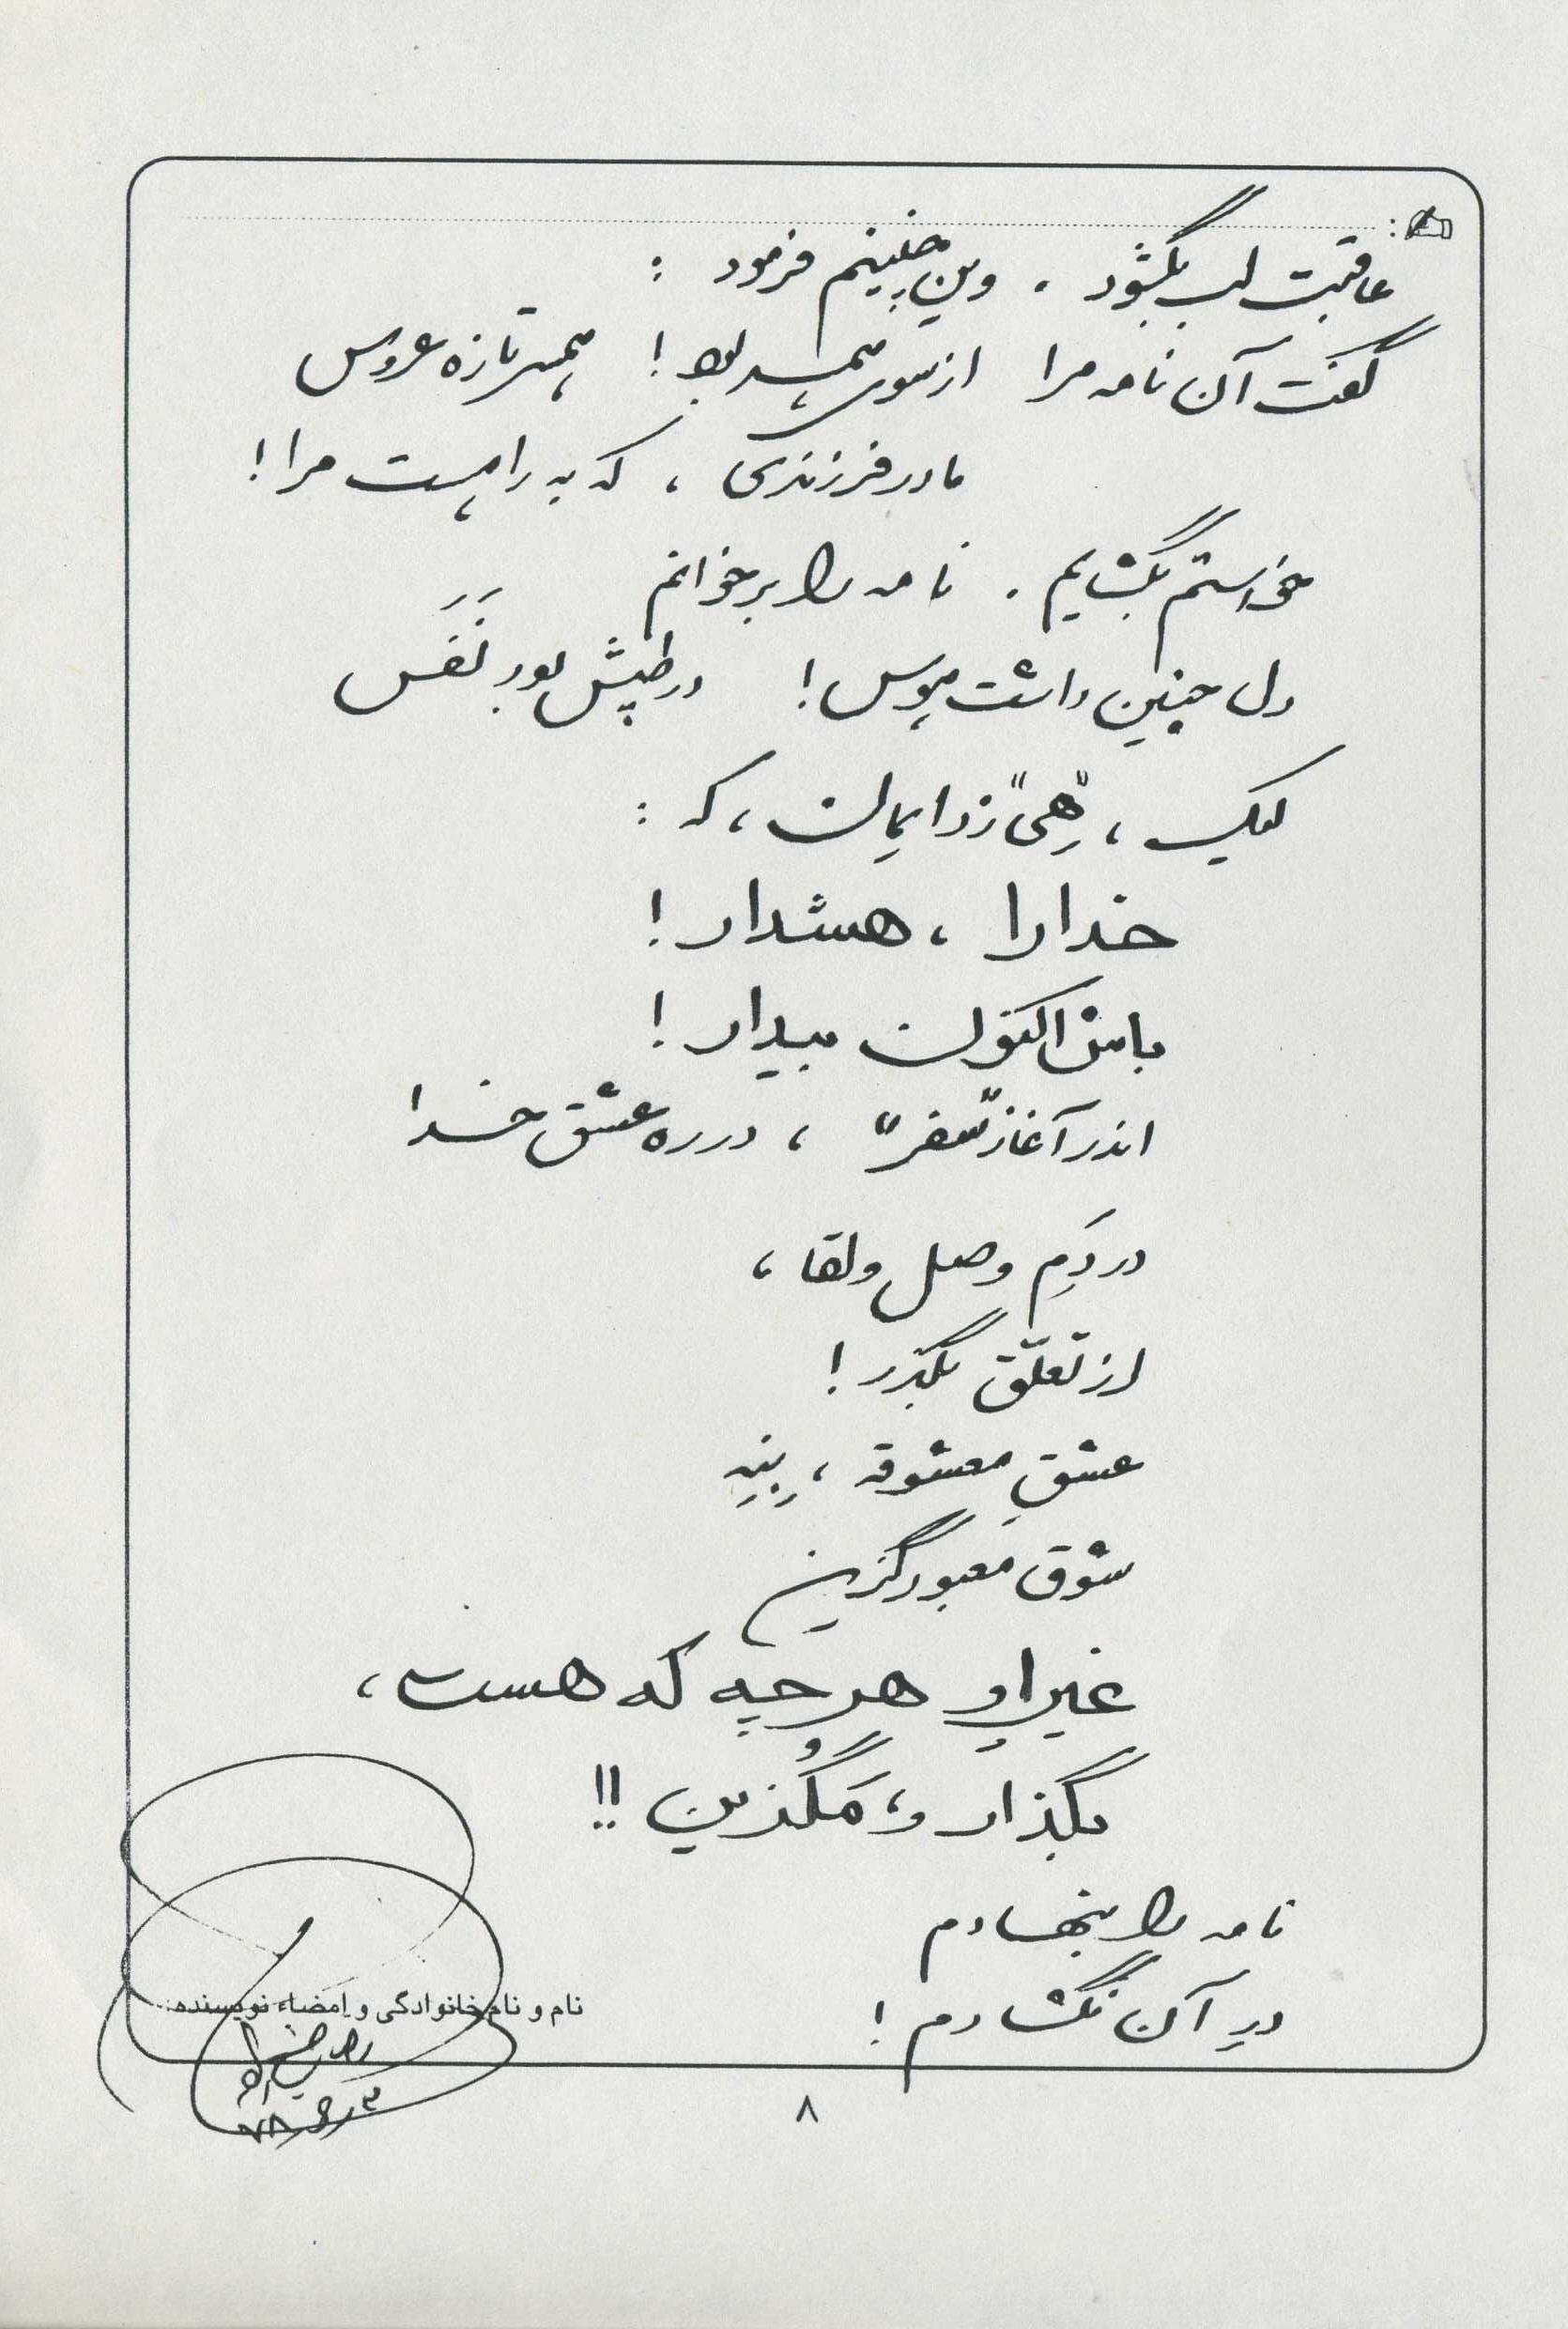 عاقبت لب بگشود ، وین چنینم فرمود :
گفت آن نامه مرا از سوی همسر بود ! همسر تازه عروس
مادر فرزندی ، که به راهست مرا !
خواستم بگشایم . نامه را برخوانم
دل چنین داشت هوس ! در طپش بود نَفَس
لیک ، "هِی" زد ایمان ، که :
خدارا ، هشدار !
باش اکنون بیدار !
اندر آغاز "سفر" ، در ره عشق خدا
در دَمِ وصل و لقا ،
از تعلّق بگذر !
عشقِ معشوقه ، بِنِه
شوق معبود گزین
غیر او هر چه که هست ،
بگذار و ، مَگُزین !!
نامه را بنهادم
درِ آن نگشادم !
نام و نام خانوادگی و امضاء نویسنده:
۸